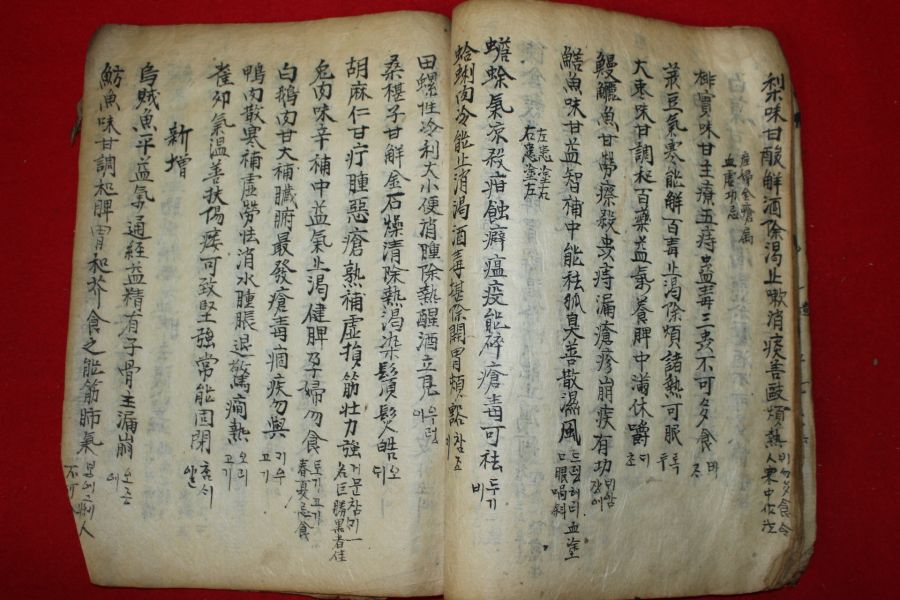 梨味甘酸解酒除渴止嗽消痰善敺煩熱 비 勿多食令人寒中作泄
產婦金瘡屬
血虛切忌
榧實味甘主療五痔蠱毒三虫不可多食 비
菉豆氣寒能解百毒止渴除煩諸熱可服 록두
大棗味甘調和百藥益氣養脾中滿休嚼 초
鰻鱺魚甘勞瘵殺虫痔漏瘡疹崩疾有功
鱔魚味甘益智補中能祛狐臭善散濕風 드렁허리 血塗口眼喎斜
左患塗右
右患塗左
蟾蜍氣凉殺疳蝕癖瘟疫能碎瘡毒可祛 두거비
蛤蜊肉冷能止消渴酒毒堪除開胃頻豁 참조
田螺性冷利大小便消腫除熱醒酒立見 우렁이
桑椹子甘解金石燥清除熱渴染鬚髮皓 오디
胡麻仁甘疔腫惡瘡熟補虛損筋壯力強 거문참 一名巨勝黑者佳
兔肉味辛補中益氣止渴健脾孕婦勿食 토기고기 春夏忌食
白鵝肉甘大補臟腑最發瘡毒痼疾勿與 고기
鴨肉散寒補虛勞怯消水腫脹退驚癇熱 오리고기
雀卯氣溫善扶陽痿可致堅強常能固閉 참시알
新增
烏賊魚平益氣通經益精有子骨主漏崩 오증에
魴魚味甘調和脾胃和芥食之能節肺氣